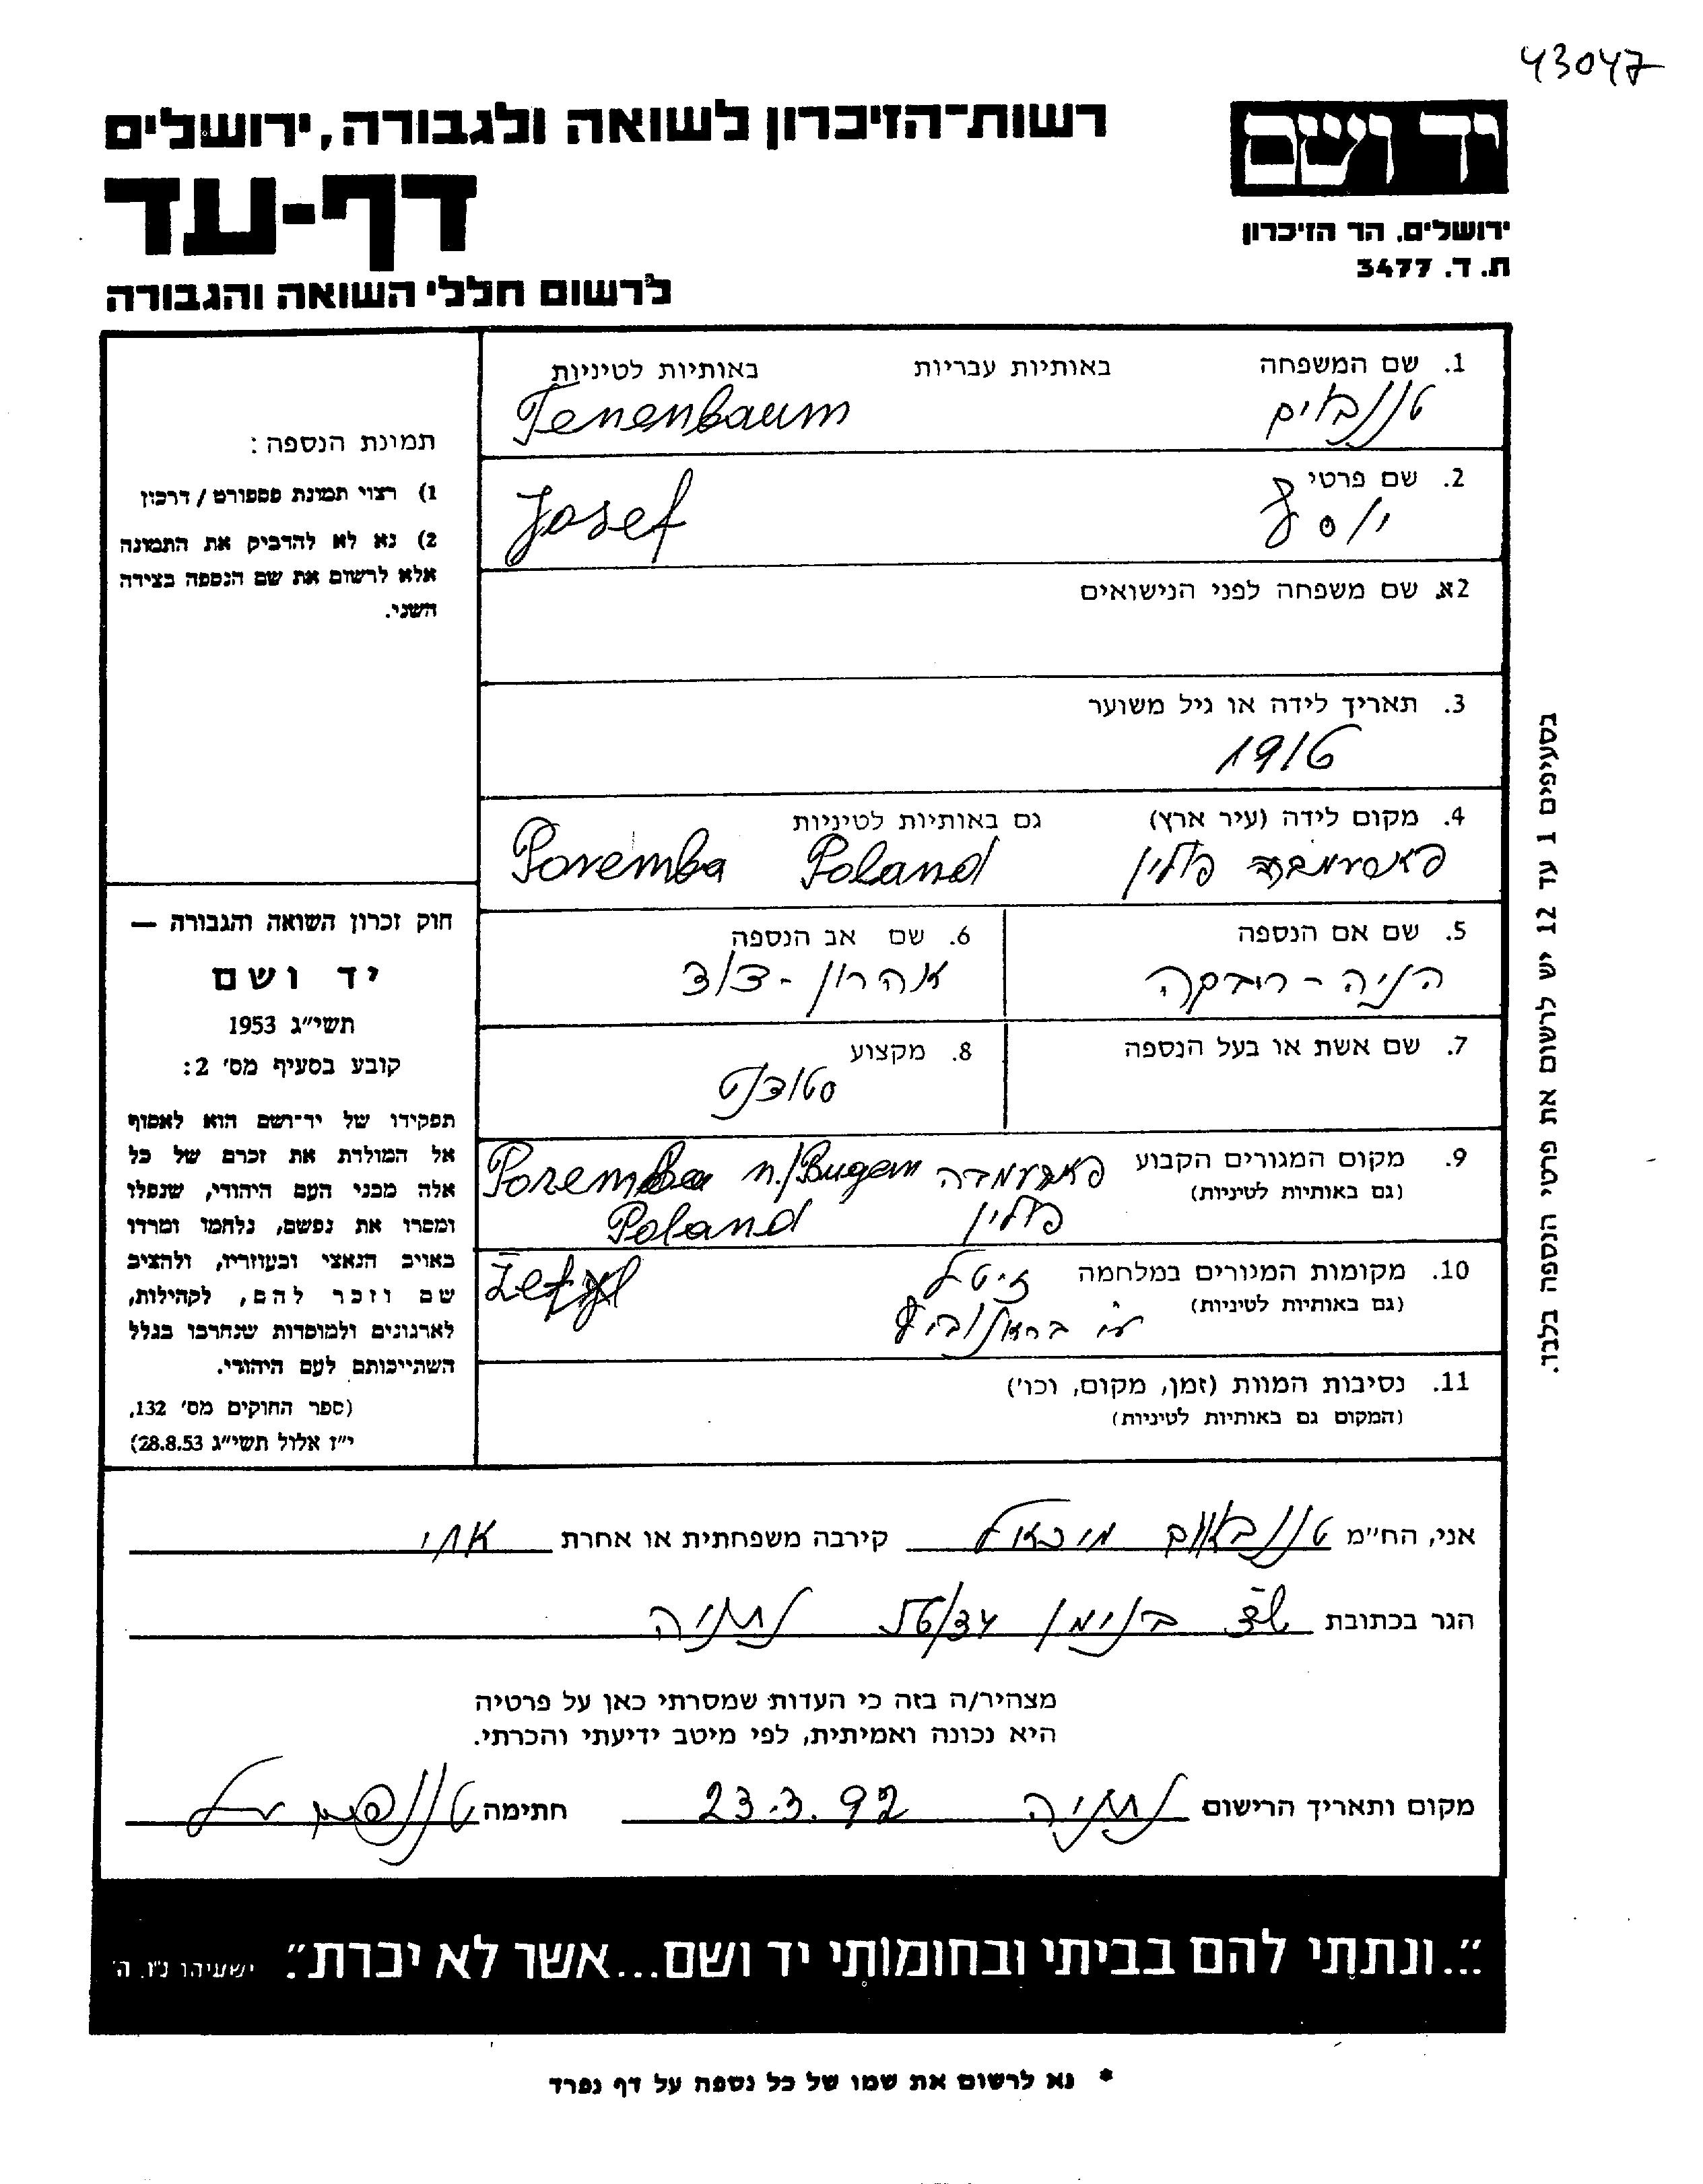 43047
יד ושם
ירושלים, הר הזיכרון
ת. ד. 3477
רשות־הזיכרון לשואה ולגבורה, ירושלים
דף-עד
לרשום חללי השואה והגבורה
1. שם המשפחה באותיות עבריות באותיות לטיניות
טננבוים Tenenbaum
2. שם פרטי
יוסף Josef
2א. שם משפחה לפני הנישואים
3. תאריך לידה או גיל משוער
1916
4. מקום לידה (עיר ארץ) גם באותיות לטיניות
פולין Poremba Poland
5. שם אם הנספה 6. שם אב הנספה
הניה - רובקה אהרון - דוד
7. שם אשת או בעל הנספה 8. מקצוע
סטודנט
9. מקום המגורים הקבוע Poremba n./Bugem
(גם באותיות לטיניות)
פולין Poland
10. מקומות המגורים במלחמה זיטל
(גם באותיות לטיניות)
ע״י
11. נסיבות המוות (זמן, מקום, וכו')
(המקום גם באותיות לטיניות)
תמונת הנספה:
1) רצוי תמונת פספורט / דרכון
2) נא לא להדביק את התמונה
אלא לרשום את שם הנספה בצידה
השני.
חוק זכרון השואה והגבורה —
יד ושם
תשי"ג 1953
קובע בסעיף מס' 2:
תפקידו של יד־ושם הוא לאסוף
אל המולדת את זכרם של כל
אלה מבני העם היהודי, שנפלו
ומסרו את נפשם, נלחמו ומרדו
באויב הנאצי ובעוזריו, ולהציב
שם וזכר להם, לקהילות,
לארגונים ולמוסדות שנחרבו בגלל
השתייכותם לעם היהודי.
(ספר החוקים מס' 132,
י"ז אלול תשי"ג 28.8.53)
בסעיפים 1 עד 12 יש לרשום את פרטי הנספה בלבד.
אני, הח"מ טננבאום מיכאל קירבה משפחתית או אחרת אחי
הגר בכתובת שד בנימן נתניה
מצהיר/ה בזה כי העדות שמסרתי כאן על פרטיה
היא נכונה ואמיתית, לפי מיטב ידיעתי והכרתי.
מקום ותאריך הרישום נתניה 23.3.92 חתימה
"...ונתתי להם בביתי ובחומותי יד ושם...אשר לא יכרת". ישעיהו נ"ו. ה'
* נא לרשום את שמו של כל נספה על דף נפרד